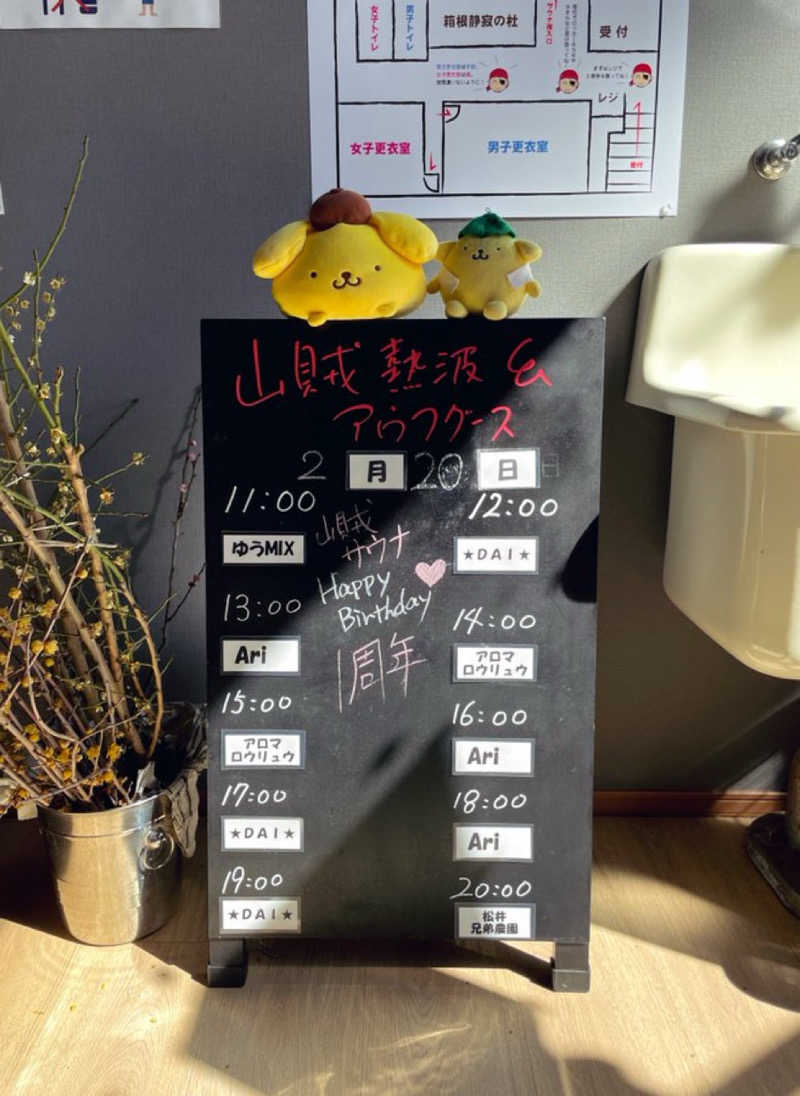 女子トイレ
男子トイレ
箱根静寂の杜
受付
レジ
女子更衣室
男子更衣室
受付
山賊熱波&
アウフグース
2月20日
11:00
ゆうMIX
12:00
★DAI★
山賊
サウナ
Happy
Birthday
1周年
13:00
Ari
14:00
アロマ
ロウリュウ
15:00
アロマ
ロウリュウ
16:00
Ari
17:00
★DAI★
18:00
Ari
19:00
★DAI★
20:00
松井
兄弟農園